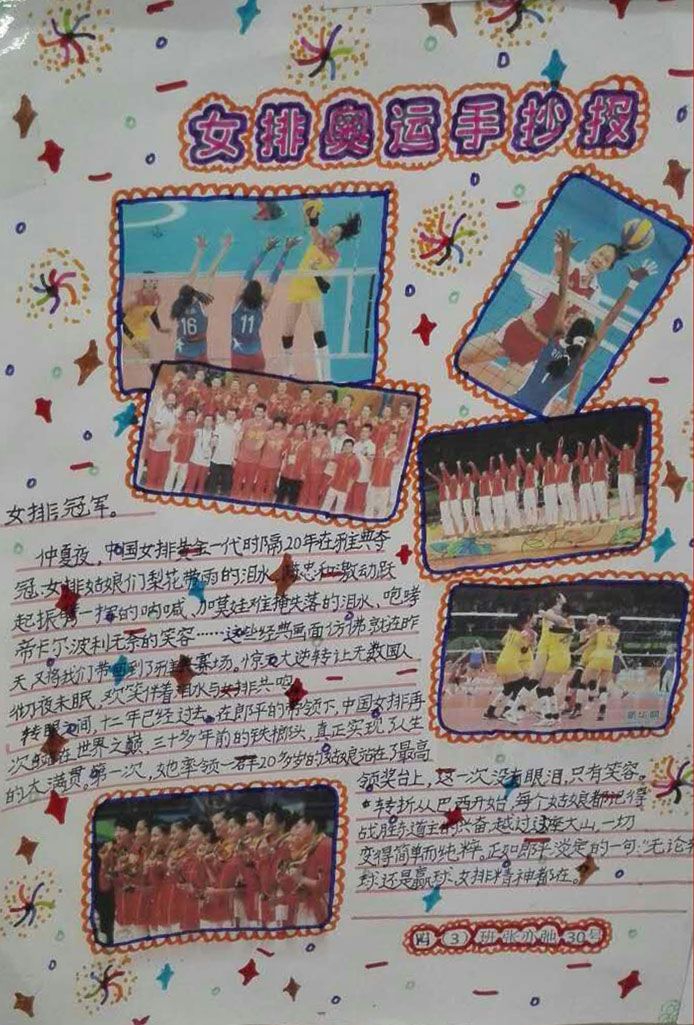 女排奥运手抄报
16
11
1
女排冠军。
仲夏夜,中国女排黄金一代时隔20年在雅典夺
冠,女排姑娘们梨花带雨的泪水、陈忠和激动跃
起振臂一挥的呐喊、加莫娃难掩失落的泪水、咆哮
帝卡尔波利无奈的笑容……这些经典画面仿佛就在昨
天,又将我们带回到了雅典赛场。惊天大逆转让无数国人
彻夜未眠,欢笑伴着泪水与女排共鸣
转眼之间,十二年已经过去。在郎平的带领下,中国女排再
次站在世界之巅,三十多年前的铁榔头,真正实现了人生
的大满贯。第一次,她率领一群20多岁的姑娘站在了最高
领奖台上,这一次没有眼泪,只有笑容。
转折从巴西开始,每个姑娘都记得
战胜东道主的兴奋,越过这座大山,一切
变得简单而纯粹。正如郎平淡定的一句:"无论
球还是赢球,女排精神都在。
新华网
四(3)班张亦驰30号